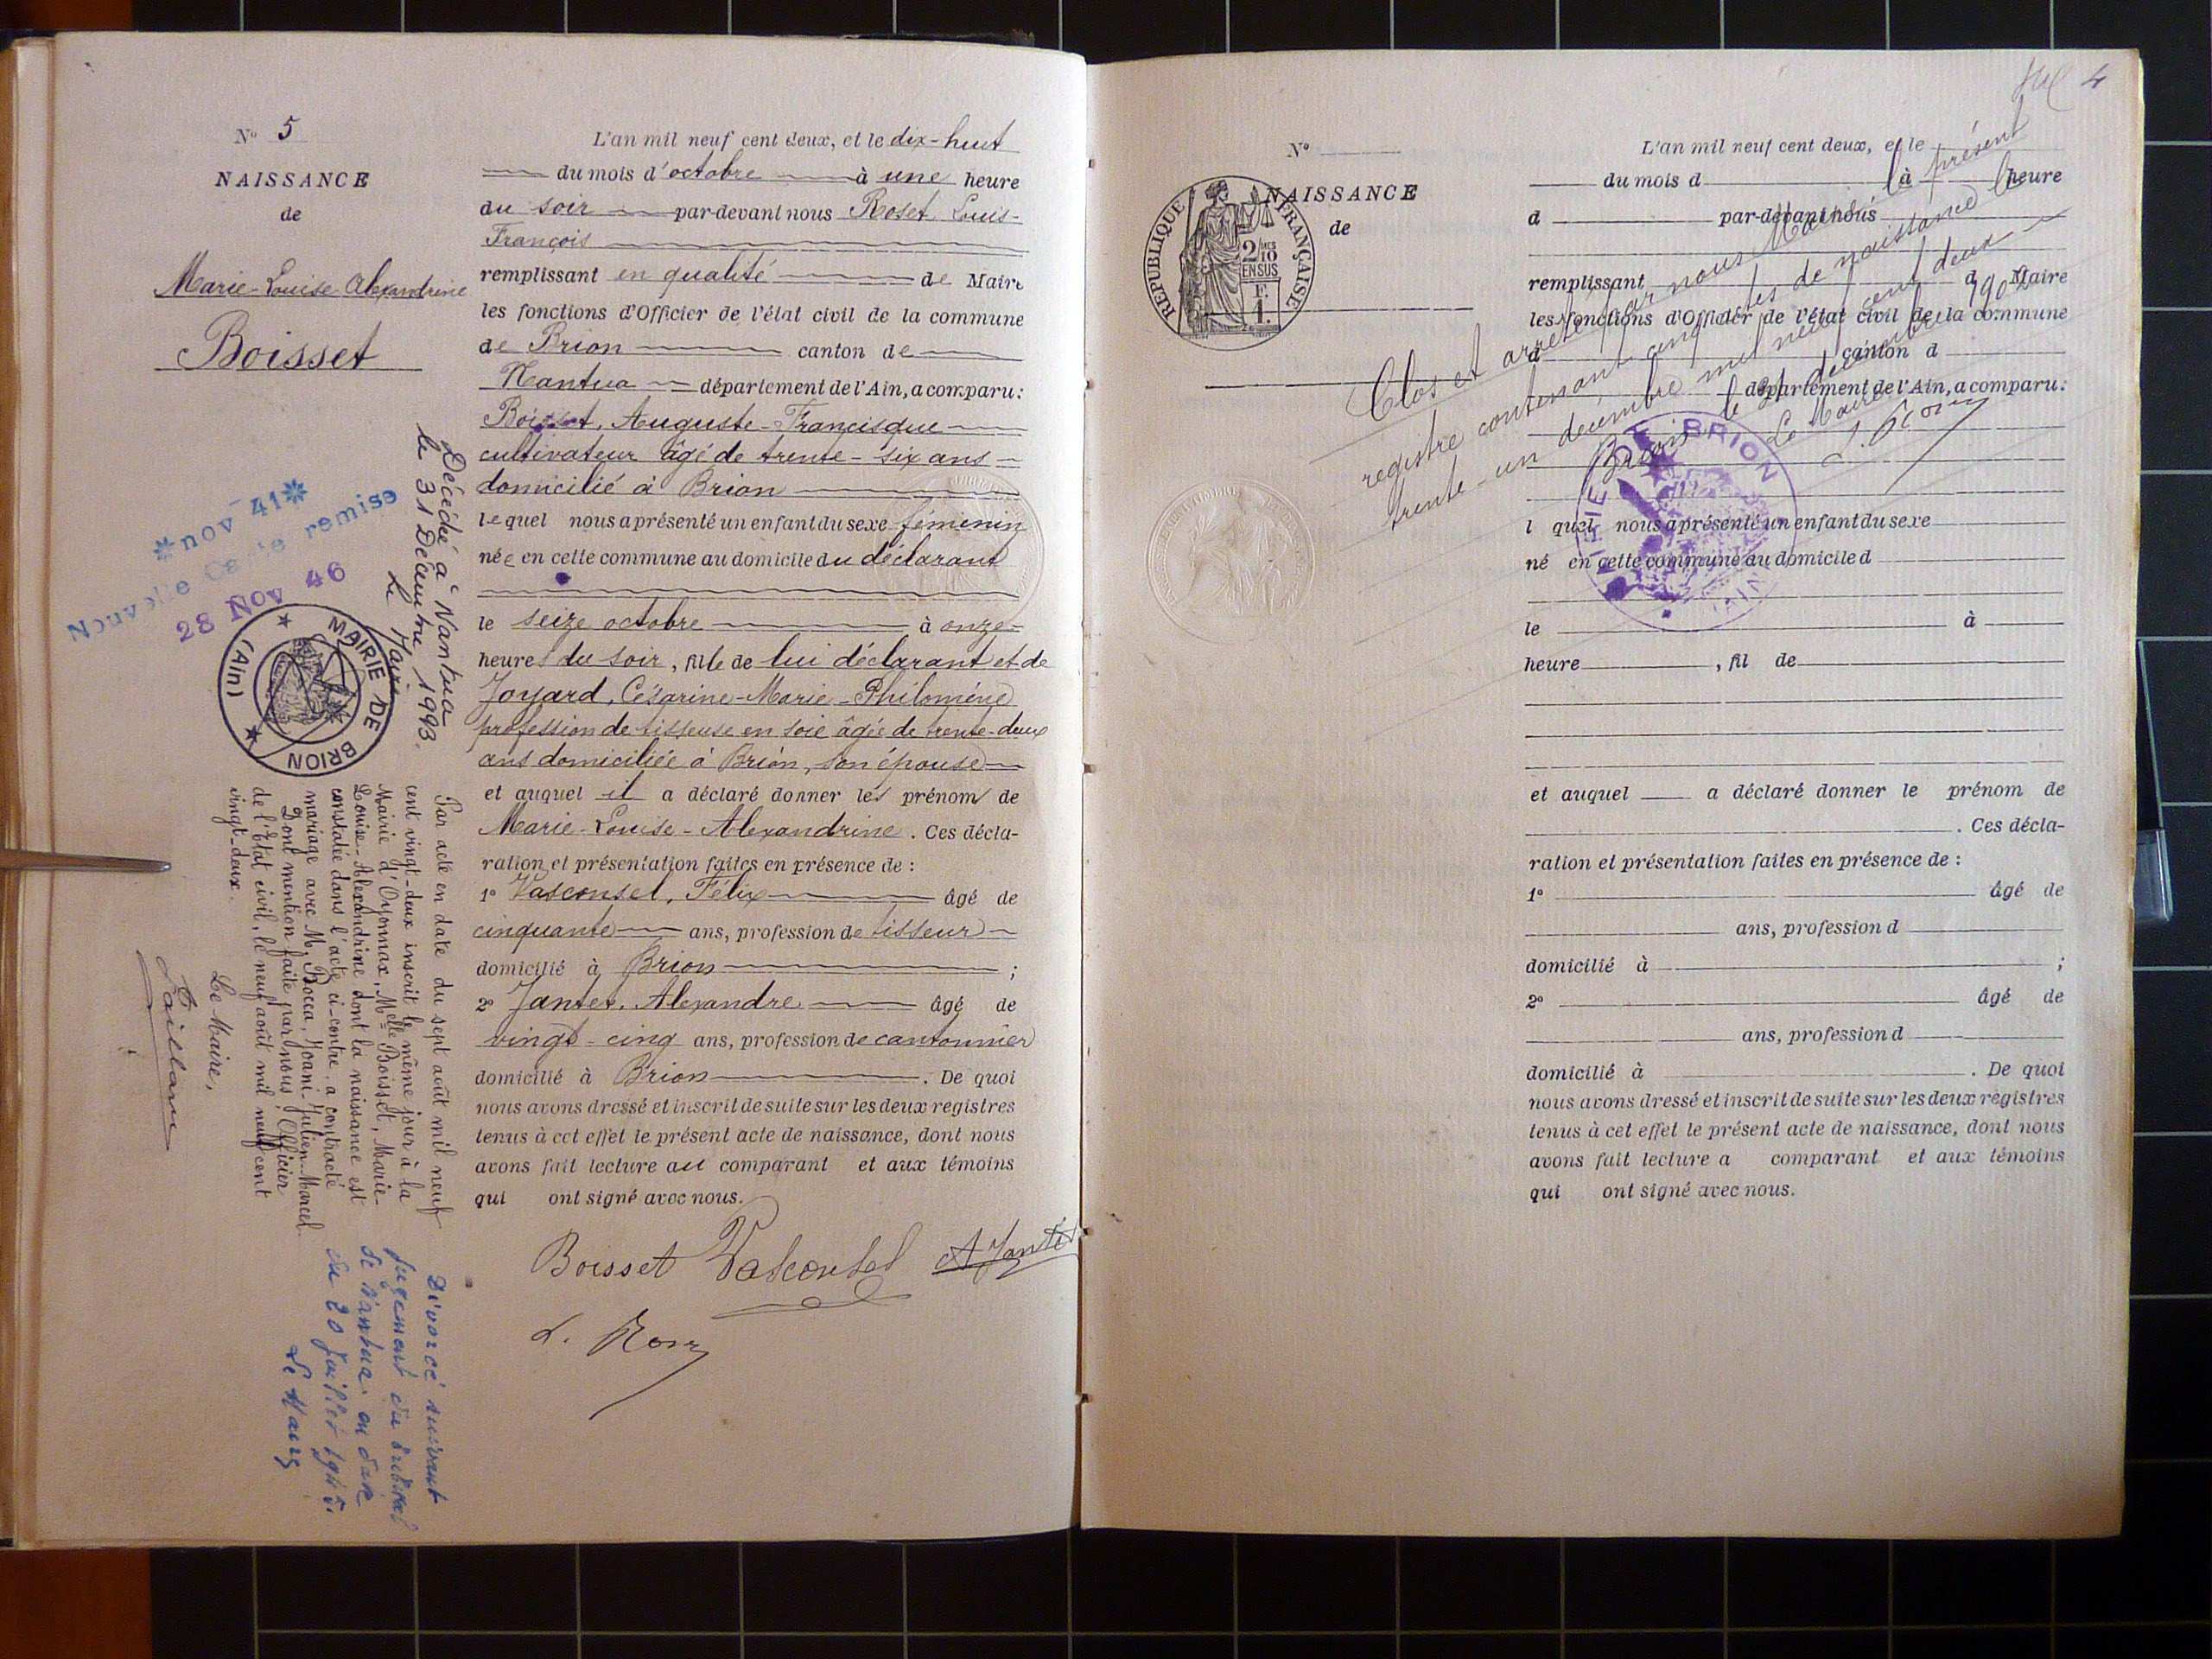 N° 5
NAISSANCE
de
Marie-Louise-Alexandrine
Boisset
L'an mil neuf cent deux, et le dix-huit
du mois d'octobre à une heure
du soir par-devant nous Roset Louis-
François
remplissant en qualité de Maire
les fonctions d'Officier de l'état civil de la commune
de Brion canton de
Nantua département de l'Ain, a comparu :
Boisset, Auguste-Francisque
cultivateur âgé de trente-six ans
domicilié à Brion
lequel nous a présenté un enfant du sexe féminin
née en cette commune au domicile du déclarant
le seize octobre à onze
heures du soir, fille de lui déclarant et de
Joyard, Césarine-Marie-Philomène
profession de tisseuse en soie âgée de trente-deux
ans domiciliée à Brion, son épouse
et auquel il a déclaré donner les prénoms de
Marie-Louise-Alexandrine. Ces décla-
ration et présentation faites en présence de :
1° Vasconsel, Félix âgé de
cinquante ans, profession de tisseur
domicilié à Brion ;
2° Jantet, Alexandre âgé de
vingt-cinq ans, profession de cantonnier
domicilié à Brion. De quoi
nous avons dressé et inscrit de suite sur les deux registres
tenus à cet effet le présent acte de naissance, dont nous
avons fait lecture au comparant et aux témoins
qui ont signé avec nous.
Boisset Vasconsel A Jantet
L.
Décédé à Nantua
le 31 Décembre 1993.
Le Maire
nov 41
Nouvelle Carte remise
28 NOV 46
MAIRIE DE BRION
(Ain)
Par acte en date du sept août mil neuf
cent vingt-deux inscrit le même jour à la
Mairie d'Oyonnax, Melle Boisset, Marie-
Louise-Alexandrine dont la naissance est
constatée dans l'acte ci-contre, a contracté
mariage avec M. Bocca, Joani-Julien-Marcel.
Dont mention faite par nous, Officier
de l'Etat civil, le neuf août mil neuf cent
vingt-deux.
Le Maire,
Divorcé suivant
jugement du tribunal
de Nantua en date
du 20 Juillet 1945.
Le Maire
4
N°
NAISSANCE
de
REPUBLIQUE FRANÇAISE
2/10
EN SUS
F.
1.
L'an mil neuf cent deux, et le
du mois d à heure
d par-devant nous
remplissant d Maire
les fonctions d'Officier de l'état civil de la commune
d canton d
département de l'Ain, a comparu :
l quel nous a présenté un enfant du sexe
né en cette commune au domicile d
le à
heure , fil de
et auquel a déclaré donner le prénom de
. Ces décla-
ration et présentation faites en présence de :
1° âgé de
ans, profession d
domicilié à ;
2° âgé de
ans, profession d
domicilié à . De quoi
nous avons dressé et inscrit de suite sur les deux registres
tenus à cet effet le présent acte de naissance, dont nous
avons fait lecture a comparant et aux témoins
qui ont signé avec nous.
Clos et arrêté par nous Maire le présent
registre contenant cinq actes de naissance le
trente-un décembre mil neuf cent deux
Brion le 31 décembre 1902
Le Maire
MAIRIE DE BRION
(AIN)